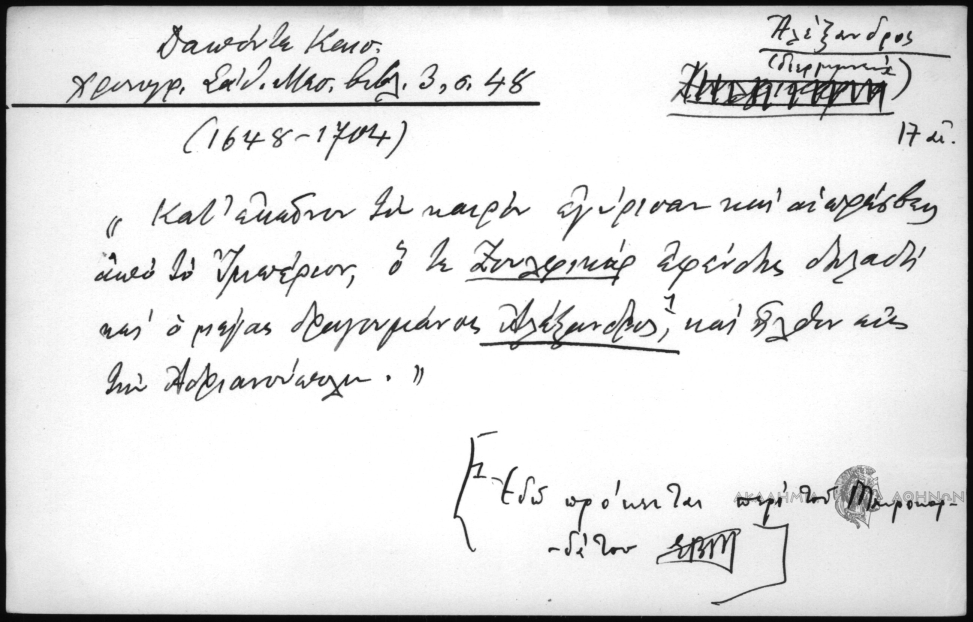 Δαπόντε Κωνσ.
Χρονογρ. Σάθ. Μεσ. Βιβλ. 3, σ. 48
(1648-1704)
Ἀλέξανδρος
(διερμηνεὺς)
17 αἰ.
„ Κατ' ἐκεῖνον τὸν καιρὸν ἐγύρισαν καὶ οἱ πρέσβεις
ἀπὸ τὸ Ἰμπέριον, ὅ τε Ζουλφικὰρ ἐφέντης δηλαδὴ
καὶ ὁ μέγας δραγουμάνος Ἀλέξανδρος,1 καὶ ἦλθον εἰς
τὴν Ἀδριανούπολιν. "
1 Ἐδῶ πρόκειται περὶ τοῦ Μαυροκορ-
-δάτου
ΑΚΑΔΗΜΙΑ ΑΘΗΝΩΝ